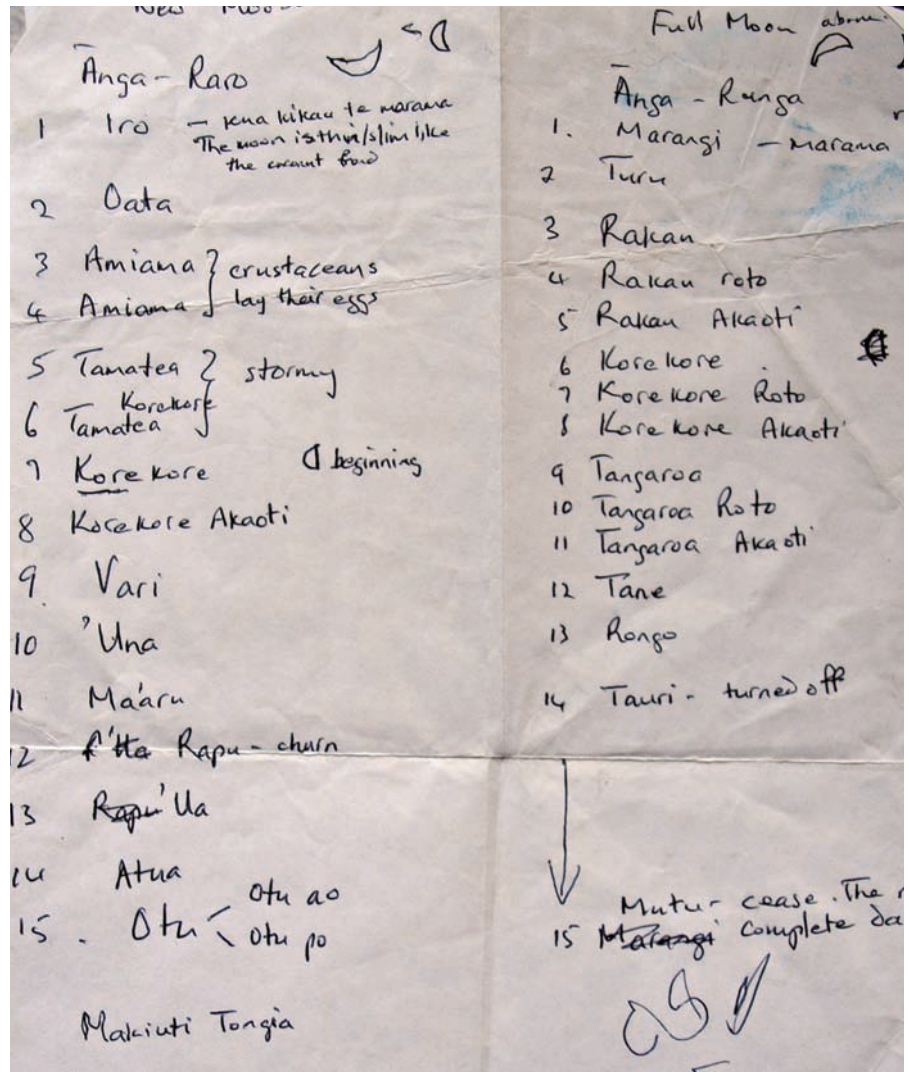 New Moon
Ānga - Raro
1 Iro - kua kikau te marama
The moon is thin/slim like
the
2 Oata
3 Amiama } crustaceans
4 Amiama } lay their eggs
5 Tamatea } stormy
Korekore
6 Tamatea
7 Korekore beginning
8 Korekore Akaoti
9. Vari
10 'Una
11 Ma'aru
12 Rapu - churn
13 'Ua
14 Atua
Otu ao
15. Otu
Otu po
Makiuti Tongia
Full Moon above
Ānga - Runga
1. Marangi - marama
2 Turu
3 Rakau
4 Rakau roto
5 Rakau Akaoti
6 Korekore
7 Korekore Roto
8 Korekore Akaoti
9 Tangaroa
10 Tangaroa Roto
11 Tangaroa Akaoti
12 Tane
13 Rongo
14 Tauri - turned off
Mutu - cease. The
15 Marangi complete da